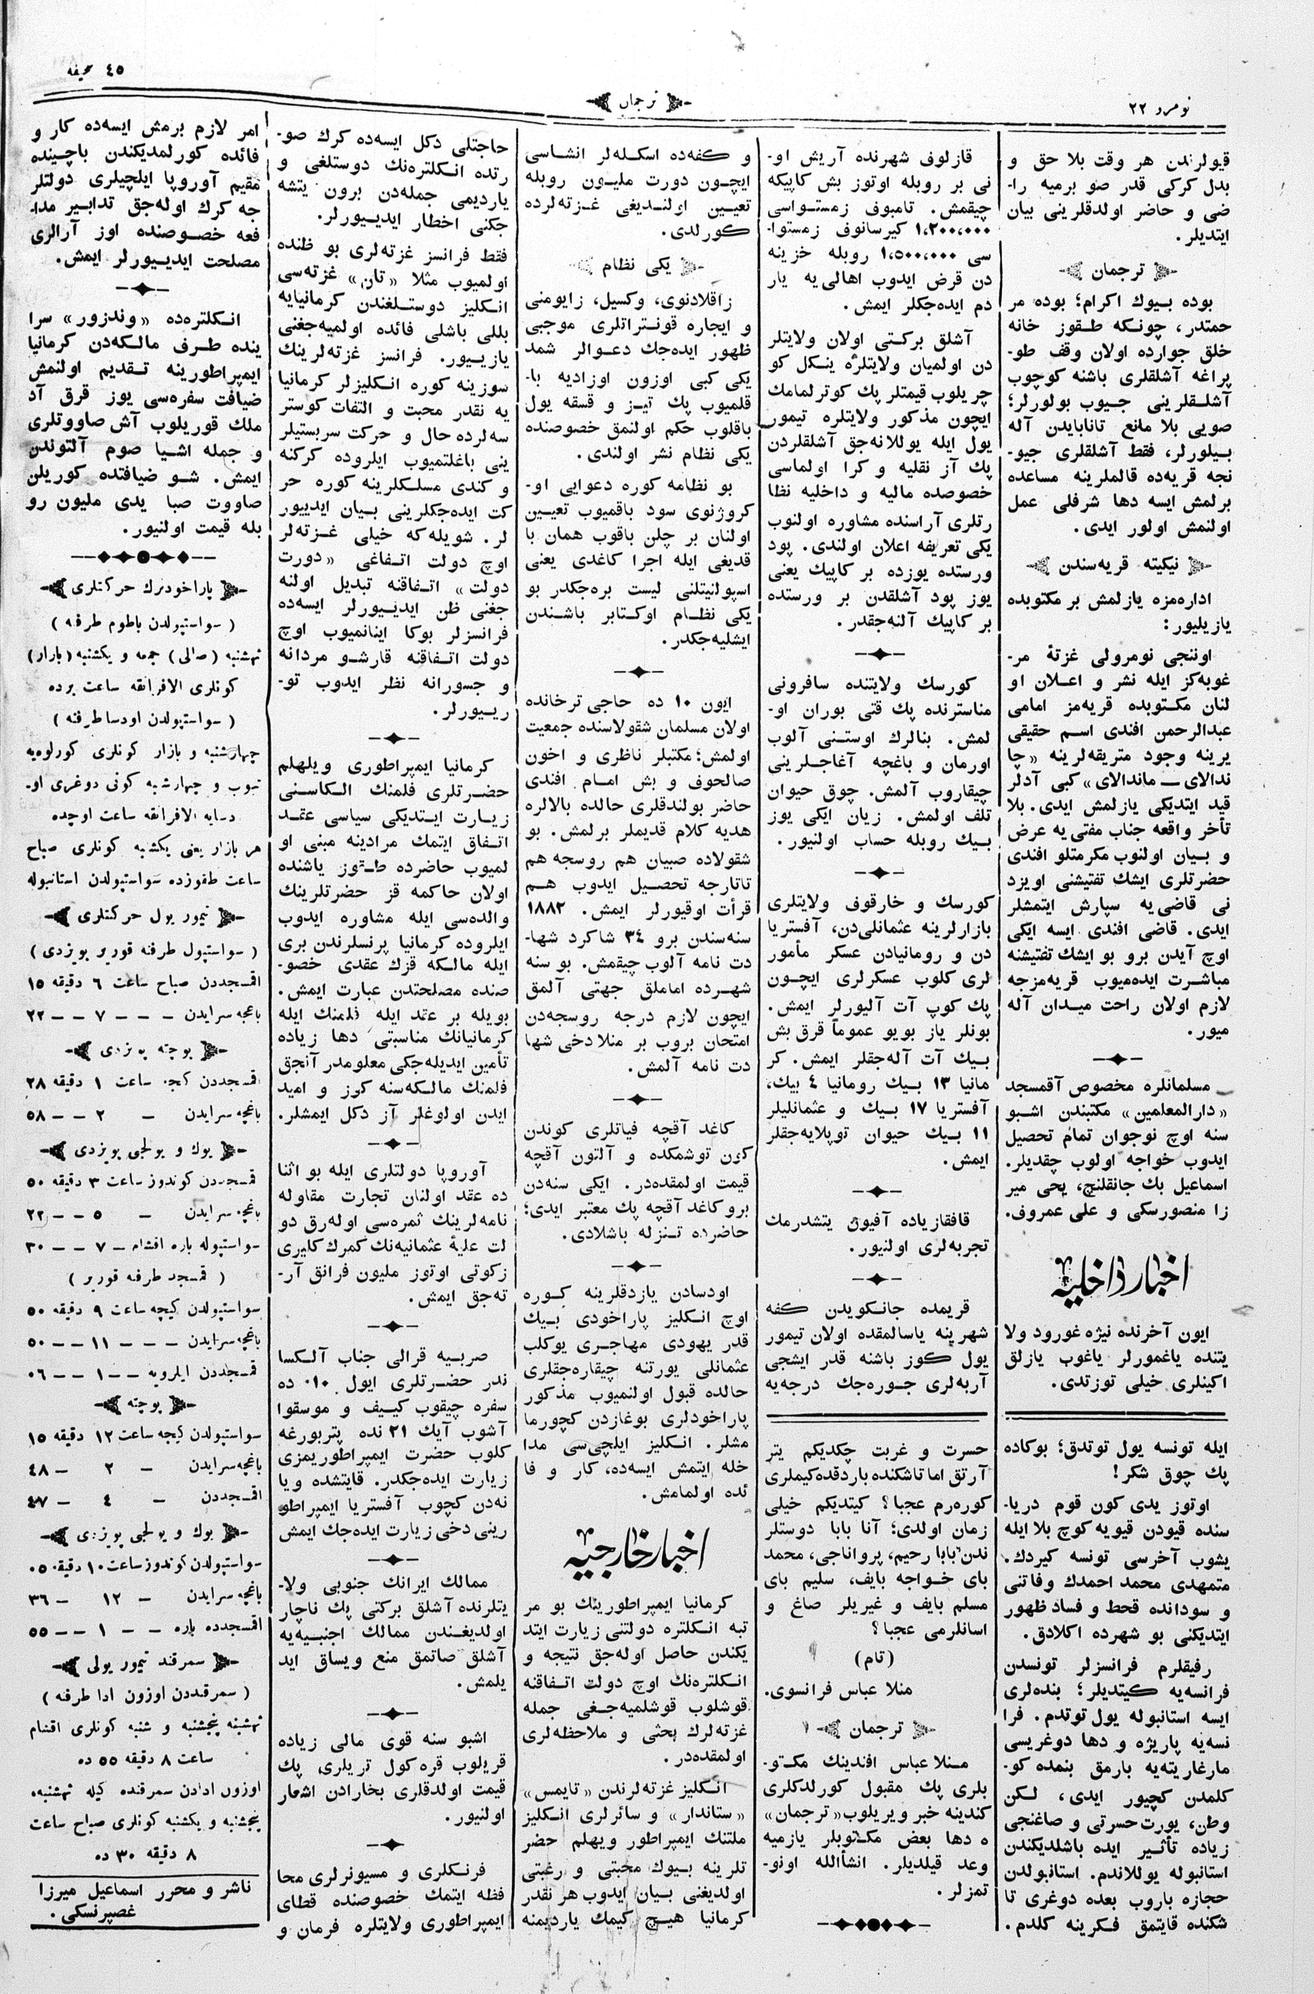 نومرو ٢٢
ترجمان
٤٥ صحیفه
قیولرندن هر وقت بلا حق و
بدل کرکی قدر صو برمیه را-
ضی و حاضر اولدقلرینی بیان
ایتدیلر.
ترجمان
بوده بیوك اکرام؛ بوده مر
حمتدر، چونکه طقوز خانه
خلق جوارده اولان وقف طو-
پراغه آشلقلری باشنه کوچوب
آشلقلرینی جیوب بولورلر؛
صویی بلا مانع تانابایدن آله
بیلورلر، فقط آشلقلری جیو-
نجه قریه‌ده قالملرینه مساعده
برلمش ایسه دها شرفلی عمل
اولنمش اولور ایدی.
نیکیته قریه‌سندن
اداره‌مزه یازلمش بر مکتوبده
یازیلیور:
اوننجی نومرولی غزتهٔ مر-
غوبه‌کز ایله نشر و اعلان او
لنان مکتوبده قریه‌مز امامی
عبدالرحمن افندی اسم حقیقی
یرینه وجود متریقه‌لرینه «چا
ندالای — ماندالای» کبی آدلر
قید ایتدیکی یازلمش ایدی. بلا
تأخر واقعه جناب مفتی‌یه عرض
و بیان اولنوب مکرمتلو افندی
حضرتلری ایشك تفتیشنی اویزد
نی قاضی‌یه سپارش ایتمشلر
ایدی. قاضی افندی ایسه ایکی
اوچ آیدن برو بو ایشك تفتیشنه
مباشرت ایده‌میوب قریه‌مزجه
لازم اولان راحت میدان آله
میور.
مسلمانلره مخصوص آقمسجد
«دارالمعلمین» مکتبندن اشبو
سنه اوچ نوجوان تمام تحصیل
ایدوب خواجه اولوب چقدیلر.
اسماعیل بك جانقلنچ، یحی میر
زا منصورسکی و علی عمروف.
اخبار داخلیه
ایون آخرنده نیژه غورود ولا
یتنده یاغمورلر یاغوب یازلق
اکینلری خیلی توزتدی.
ایله تونسه یول توتدق؛ بوکاده
پك چوق شکر!
اوتوز یدی کون قوم دریا-
سنده قیودن قیویه کوچ بلا ایله
یشوب آخرسی تونسه کیردك.
متمهدی محمد احمدك وفاتنی
و سودانده قحط و فساد ظهور
ایتدیکنی بو شهرده اکلادق.
رفیقلرم فرانسزلر تونسدن
فرانسه‌یه کیتدیلر؛ بنده‌لری
ایسه استانبوله یول توتدم. فرا
نسه‌یه پاریژه و دها دوغریسی
مارغاریته‌یه بارمق بنمده کو-
کلمدن کچیور ایدی، لکن
وطن، یورت حسرتی و صاغنجی
زیاده تأثیر ایده باشلدیکندن
استانبوله یوللاندم. استانبولدن
حجازه باروب بعده دوغری تا
شکنده قایتمق فکرینه کلدم.
قازلوف شهرنده آریش او-
نی بر روبله اوتوز بش کاپیکه
چیقمش. تامبوف زمستواسی
١،٢٠٠،٠٠٠ کیرسانوف زمستوا-
سی ١،٥٠٠،٠٠٠ روبله خزینه
دن قرض ایدوب اهالی‌یه یار
دم ایده‌جکلر ایمش.
آشلق برکتی اولان ولایتلر
دن اولمیان ولایتلره ینکل کو
چریلوب قیمتلر پك کوترلمامك
ایچون مذکور ولایتلره تیمور
یول ایله یوللانه‌جق آشلقلردن
پك آز نقلیه و کرا اولماسی
خصوصده مالیه و داخلیه نظا
رتلری آراسنده مشاوره اولنوب
یکی تعریفه اعلان اولندی. پود
ورستده یوزده بر کاپیك یعنی
یوز پود آشلقدن بر ورستده
بر کاپیك آلنه‌جقدر.
کورسك ولایتنده سافرونی
مناسترنده پك قتی بوران او-
لمش. بنالرك اوستنی آلوب
اورمان و باغچه آغاجلرینی
چیقاروب آلمش. چوق حیوان
تلف اولمش. زیان ایکی یوز
بیك روبله حساب اولنیور.
کورسك و خارقوف ولایتلری
بازارلرینه عثمانلی‌دن، آفستریا
دن و رومانیادن عسکر مأمور
لری کلوب عسکرلری ایچون
پك کوپ آت آلیورلر ایمش.
بونلر یاز بویو عموماً قرق بش
بیك آت آله‌جقلر ایمش. کر
مانیا ١٣ بیك رومانیا ٤ بیك،
آفستریا ١٧ بیك و عثمانلیلر
١١ بیك حیوان توپلایه‌جقلر
ایمش.
قافقازیاده آفیون یتشدرمك
تجربه‌لری اولنیور.
قریمده جانکویدن کفه
شهرینه یاسالمقده اولان تیمور
یول کوز باشنه قدر ایشجی
آربه‌لری جوره‌جك درجه‌یه
حسرت و غربت چکدیکم یتر
آرتق اما تاشکنده باردقده کیملری
کوره‌رم عجبا؟ کیتدیکم خیلی
زمان اولدی؛ آنا بابا دوستلر
ندن بابا رحیم، پرواناجی، محمد
بای خواجه بایف، سلیم بای
مسلم بایف و غیریلر صاغ و
اسانلرمی عجبا؟
(تام)
منلا عباس فرانسوی.
ترجمان
منلا عباس افندینك مکتو-
بلری پك مقبول کورلدکلری
کندینه خبر ویریلوب «ترجمان»
ه دها بعض مکتوبلر یازمیه
وعد قیلدیلر. انشأالله اونو-
تمزلر.
و کفه‌ده اسکله‌لر انشاسی
ایچون دورت ملیون روبله
تعیین اولندیغی غزته‌لرده
کورلدی.
یکی نظام
زاقلادنوی، وکسیل، زایومنی
و ایجاره قونتراتلری موجبی
ظهور ایده‌جك دعوالر شمد
یکی کبی اوزون اوزادیه با-
قلمیوب پك تیز و قسقه یول
باقلوب حکم اولنمق خصوصنده
یکی نظام نشر اولندی.
بو نظامه کوره دعوایی او-
کروژنوی سود باقمیوب تعیین
اولنان بر چلن باقوب همان با
قدیغی ایله اجرا کاغدی یعنی
اسپولنیتلنی لیست بره‌جکدر بو
یکی نظام اوکتابر باشندن
ایشلیه‌جکدر.
ایون ١٠ ده حاجی ترخانده
اولان مسلمان شقولاسنده جمعیت
اولمش؛ مکتبلر ناظری و اخون
صالحوف و بش امام افندی
حاضر بولندقلری حالده بالالره
هدیه کلام قدیملر برلمش. بو
شقولاده صبیان هم روسجه هم
تاتارجه تحصیل ایدوب هم
قرأت اوقیورلر ایمش. ١٨٨٢
سنه‌سندن برو ٣٤ شاکرد شها-
دت نامه آلوب چیقمش. بو سنه
شهرده امامالق جهتی آلمق
ایچون لازم درجه روسجه‌دن
امتحان بروب بر منلا دخی شها
دت نامه آلمش.
کاغد آقچه فیاتلری کوندن
کون توشمکده و آلتون آقچه
قیمت اولمقده‌در. ایکی سنه‌دن
برو کاغد آقچه پك معتبر ایدی؛
حاضرده تنزله باشلادی.
اودسادن یازدقلرینه کوره
اوچ انکلیز پاراخودی بیك
قدر یهودی مهاجری یوکلب
عثمانلی یورتنه چیقاره‌جقلری
حالده قبول اولنمیوب مذکور
پاراخودلری بوغازدن کچورما
مشلر. انکلیز ایلچی‌سی مدا
خله ایتمش ایسه‌ده، کار و فا
ئده اولمامش.
اخبار خارجیه
کرمانیا ایمپراطورینك بو مر
تبه انکلتره دولتنی زیارت ایتد
یکندن حاصل اوله‌جق نتیجه و
انکلتره‌نك اوچ دولت اتفاقنه
قوشلوب قوشلمیه‌جغی جمله
غزته‌لرك بحثی و ملاحظه‌لری
اولمقده‌در.
انکلیز غزته‌لرندن «تایمس»
«ستاندار» و سائرلری انکلیز
ملتنك ایمپراطور ویهلم حضر
تلرینه بیوك محبتی و رغبتی
اولدیغنی بیان ایدوب هر نقدر
کرمانیا هیچ کیمك یاردیمنه
حاجتلی دکل ایسه‌ده کرك صو-
رتده انکلتره‌نك دوستلغی و
یاردیمی جمله‌دن برون یتشه
جکنی اخطار ایدییورلر.
فقط فرانسز غزته‌لری بو ظنده
اولمیوب مثلا «تان» غزته‌سی
انکلیز دوستلغندن کرمانیایه
بللی باشلی فائده اولمیه‌جغنی
یازییور. فرانسز غزته‌لرینك
سوزینه کوره انکلیزلر کرمانیا
یه نقدر محبت و التفات کوستر
سه‌لرده حال و حرکت سربستیلر
ینی باغلتمیوب ایلروده کرکنه
و کندی مسلکلرینه کوره حر
کت ایده‌جکلرینی بیان ایدییور
لر. شویله‌که خیلی غزته‌لر
اوچ دولت اتفاغی «دورت
دولت» اتفاقنه تبدیل اولنه
جغنی ظن ایدییورلر ایسه‌ده
فرانسزلر بوکا اینانمیوب اوچ
دولت اتفاقنه قارشو مردانه
و جسورانه نظر ایدوب تو-
رییورلر.
کرمانیا ایمپراطوری ویلهلم
حضرتلری فلمنك الکاسنی
زیارت ایتدیکی سیاسی عقد
اتفاق ایتمك مرادینه مبنی او
لمیوب حاضرده طقوز یاشنده
اولان حاکمه قز حضرتلرینك
والده‌سی ایله مشاوره ایدوب
ایلروده کرمانیا پرنسلرندن بری
ایله مالکه قزك عقدی خصو-
صنده مصلحتدن عبارت ایمش.
بویله بر عقد ایله فلمنك ایله
کرمانیانك مناسبتی دها زیاده
تأمین ایدیله‌جکی معلومدر آنجق
فلمنك مالکه‌سنه کوز و امید
ایدن اولوغلر آز دکل ایمشلر.
آوروپا دولتلری ایله بو اثنا
ده عقد اولنان تجارت مقاوله
نامه‌لرینك ثمره‌سی اوله‌رق دو
لت علیهٔ عثمانیه‌نك کمرك کلیری
زکوتی اوتوز ملیون فرانق آر-
ته‌جق ایمش.
صربیه قرالی جناب آلکسا
ندر حضرتلری ایول ١٠ ده
سفره چیقوب کییف و موسقوا
آشوب آیك ٢١ نده پتربورغه
کلوب حضرت ایمپراطوریمزی
زیارت ایده‌جکدر. قایتشده ویا
نه‌دن کچوب آفستریا ایمپراطو
رینی دخی زیارت ایده‌جك ایمش
ممالك ایرانك جنوبی ولا-
یتلرنده آشلق برکتی پك ناچار
اولدیغندن ممالك اجنبیه‌یه
آشلق صاتمق منع ویساق اید
یلمش.
اشبو سنه قوی مالی زیاده
قریلوب قره‌کول تریلری پك
قیمت اولدقلری بخارادن اشعار
اولنیور.
فرنکلری و مسیونرلری محا
فظه ایتمك خصوصنده قطای
ایمپراطوری ولایتلره فرمان و
امر لازم برمش ایسه‌ده کار و
فائده کورلمدیکندن باچینده
مقیم آوروپا ایلچیلری دولتلر
جه کرك اوله‌جق تدابیر مدا-
فعه خصوصنده اوز آرالری
مصلحت ایدییورلر ایمش.
انکلتره‌ده «وندزور» سرا
ینده طرف مالکه‌دن کرمانیا
ایمپراطورینه تقدیم اولنمش
ضیافت سفره‌سی یوز قرق آد
ملك قوریلوب آش صاووتلری
و جمله اشیا صوم آلتوندن
ایمش. شو ضیافتده کوریلن
صاووت صبا یدی ملیون رو
بله قیمت اولنیور.
پاراخودرك حرکتلری
(سواستپولدن باطوم طرفه)
ثهشنبه (صالی) جمعه و یکشنبه (بازار)
کونلری الافرانقه ساعت برده
(سواستپولدن اودسا طرفه)
چهارشنبه و بازار کونلری کورلویه
تیوب و چهارشنبه کونی دوغری او-
دسایه الافرانقه ساعت اوچده
هر بازار یعنی یکشنبه کونلری صباح
ساعت طقوزده سواستپولدن استانبوله
تیمور یول حرکتلری
(سواستپول طرفنه قوریر پویزدی)
اقمسجددن صباح ساعت ٦ دقیقه ١٥
باغچه سرایدن — — ٧ — — ٢٢
پوچته پویزدی
اقمسجددن کیجه ساعت ١ دقیقه ٢٨
باغچه سرایدن — ٢ — — ٥٨
یوك و یولجی پویزدی
اقمسجددن کوندوز ساعت ٣ دقیقه ٥٠
باغچه سرایدن — ٥ — — ٢٢
سواستپوله باره اقشام — ٧ — — ٣٠
(اقمسجد طرفنه قوریر)
سواستپولدن کیچه ساعت ٩ دقیقه ٥٠
باغچه سرایدن — — ١١ — — ٥٠
اقمسجددن ایلرویه — — ١ — — ٠٦
پوچته
سواستپولدن کیجه ساعت ١٢ دقیقه ١٥
باغچه سرایدن — ٢ — ٤٨
اقمسجددن — ٤ — ٤٧
یوك و یولجی پویزدی
سواستپولدن کوندوز ساعت ١٠ دقیقه ٠٥
باغچه سرایدن — ١٢ — ٣٦
اقمسجدده باره — — ١ — — ٥٥
سمرقند تیمور یولی
(سمرقنددن اوزون ادا طرفه)
ثهشنبه پنجشنبه و شنبه کونلری اقشام
ساعت ٨ دقیقه ٥٥ ده
اوزون ادادن سمرقنده کیله ثهشنبه،
پنجشنبه و یکشنبه کونلری صباح ساعت
٨ دقیقه ٣٠ ده
ناشر و محرر اسماعیل میرزا
غصپرنسکی.